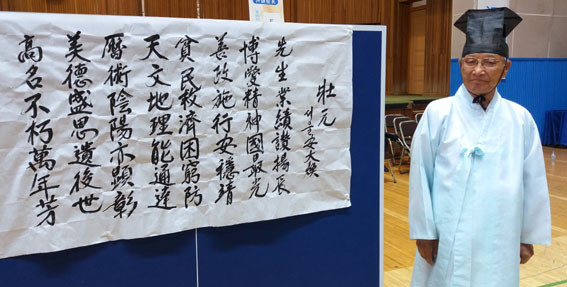 壯元
서울 安大煥
先生業績讚揚辰
博愛精神國最光
善政施行安穩靖
貧民救濟困窮防
天文地理能通達
曆術陰陽亦顯彰
美德盛恩遺後世
高名不朽萬年芳